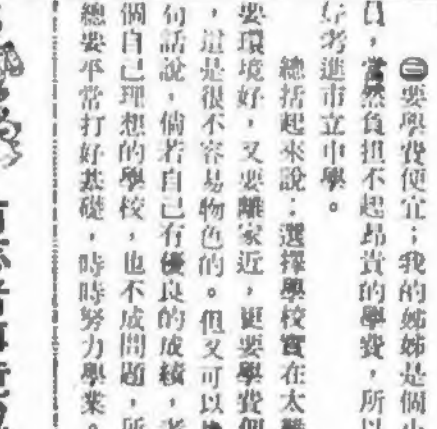 ㊂要學費便宜；我的姊姊是個小
員，當然負担不起昂貴的學費，所以
好考進市立中學。
總括起來說：選擇學校實在太難
要環境好，又要離家近，更要學費便
，這是很不容易物色的。但又可以
句話說，倘若自己有優良的成績，考
個自己理想的學校，也不成問題，所
總要平常打好基礎，時時努力學業。